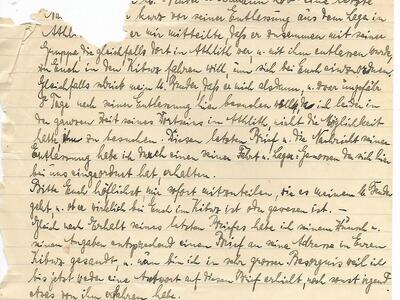 kurz vor seiner Entlassung aus dem Lager in
Athl er mir mitteilte dass er zusammen mit seiner
Gruppe, die gleichfalls dort in Athlith war, u. mit ihm entlassen wurde,
zu Euch in den Kibuz fahren will um sich bei Euch einzuordnen.
Gleichfalls schrieb mein lb. Bruder dass er mich alsdann, u. zwar ungefähr
8 Tage nach seiner Entlassung hier besuchen wollte, da ich leider in
der ganzen Zeit seines Dortseins in Athlith nicht die Möglichkeit
hatte ihn zu besuchen. Diesen letzten Brief u. die Nachricht seiner
Entlassung habe ich durch einen seiner Fahrt u. Lager-Genossen da sich hier
bei uns eingeordnet hat erhalten.
Bitte Euch höflichst mir sofort mitzuteilen, wie es meinem lb. Bruder
geht, u. ob er wirklich bei Euch im Kibuz ist oder gewesen ist. –
Gleich nach Erhalt seines letzten Briefes habe ich seinem Wunsch u.
seinen Angaben entsprechend einen Brief an seine Adresse in Euren
Kibuz gesandt u. nun bin ich in sehr grosser Besorgnis weil ich
bis jetzt weder eine Antwort auf diesen Brief erhielt, noch sonst irgend
etwas von ihm erfahren habe.